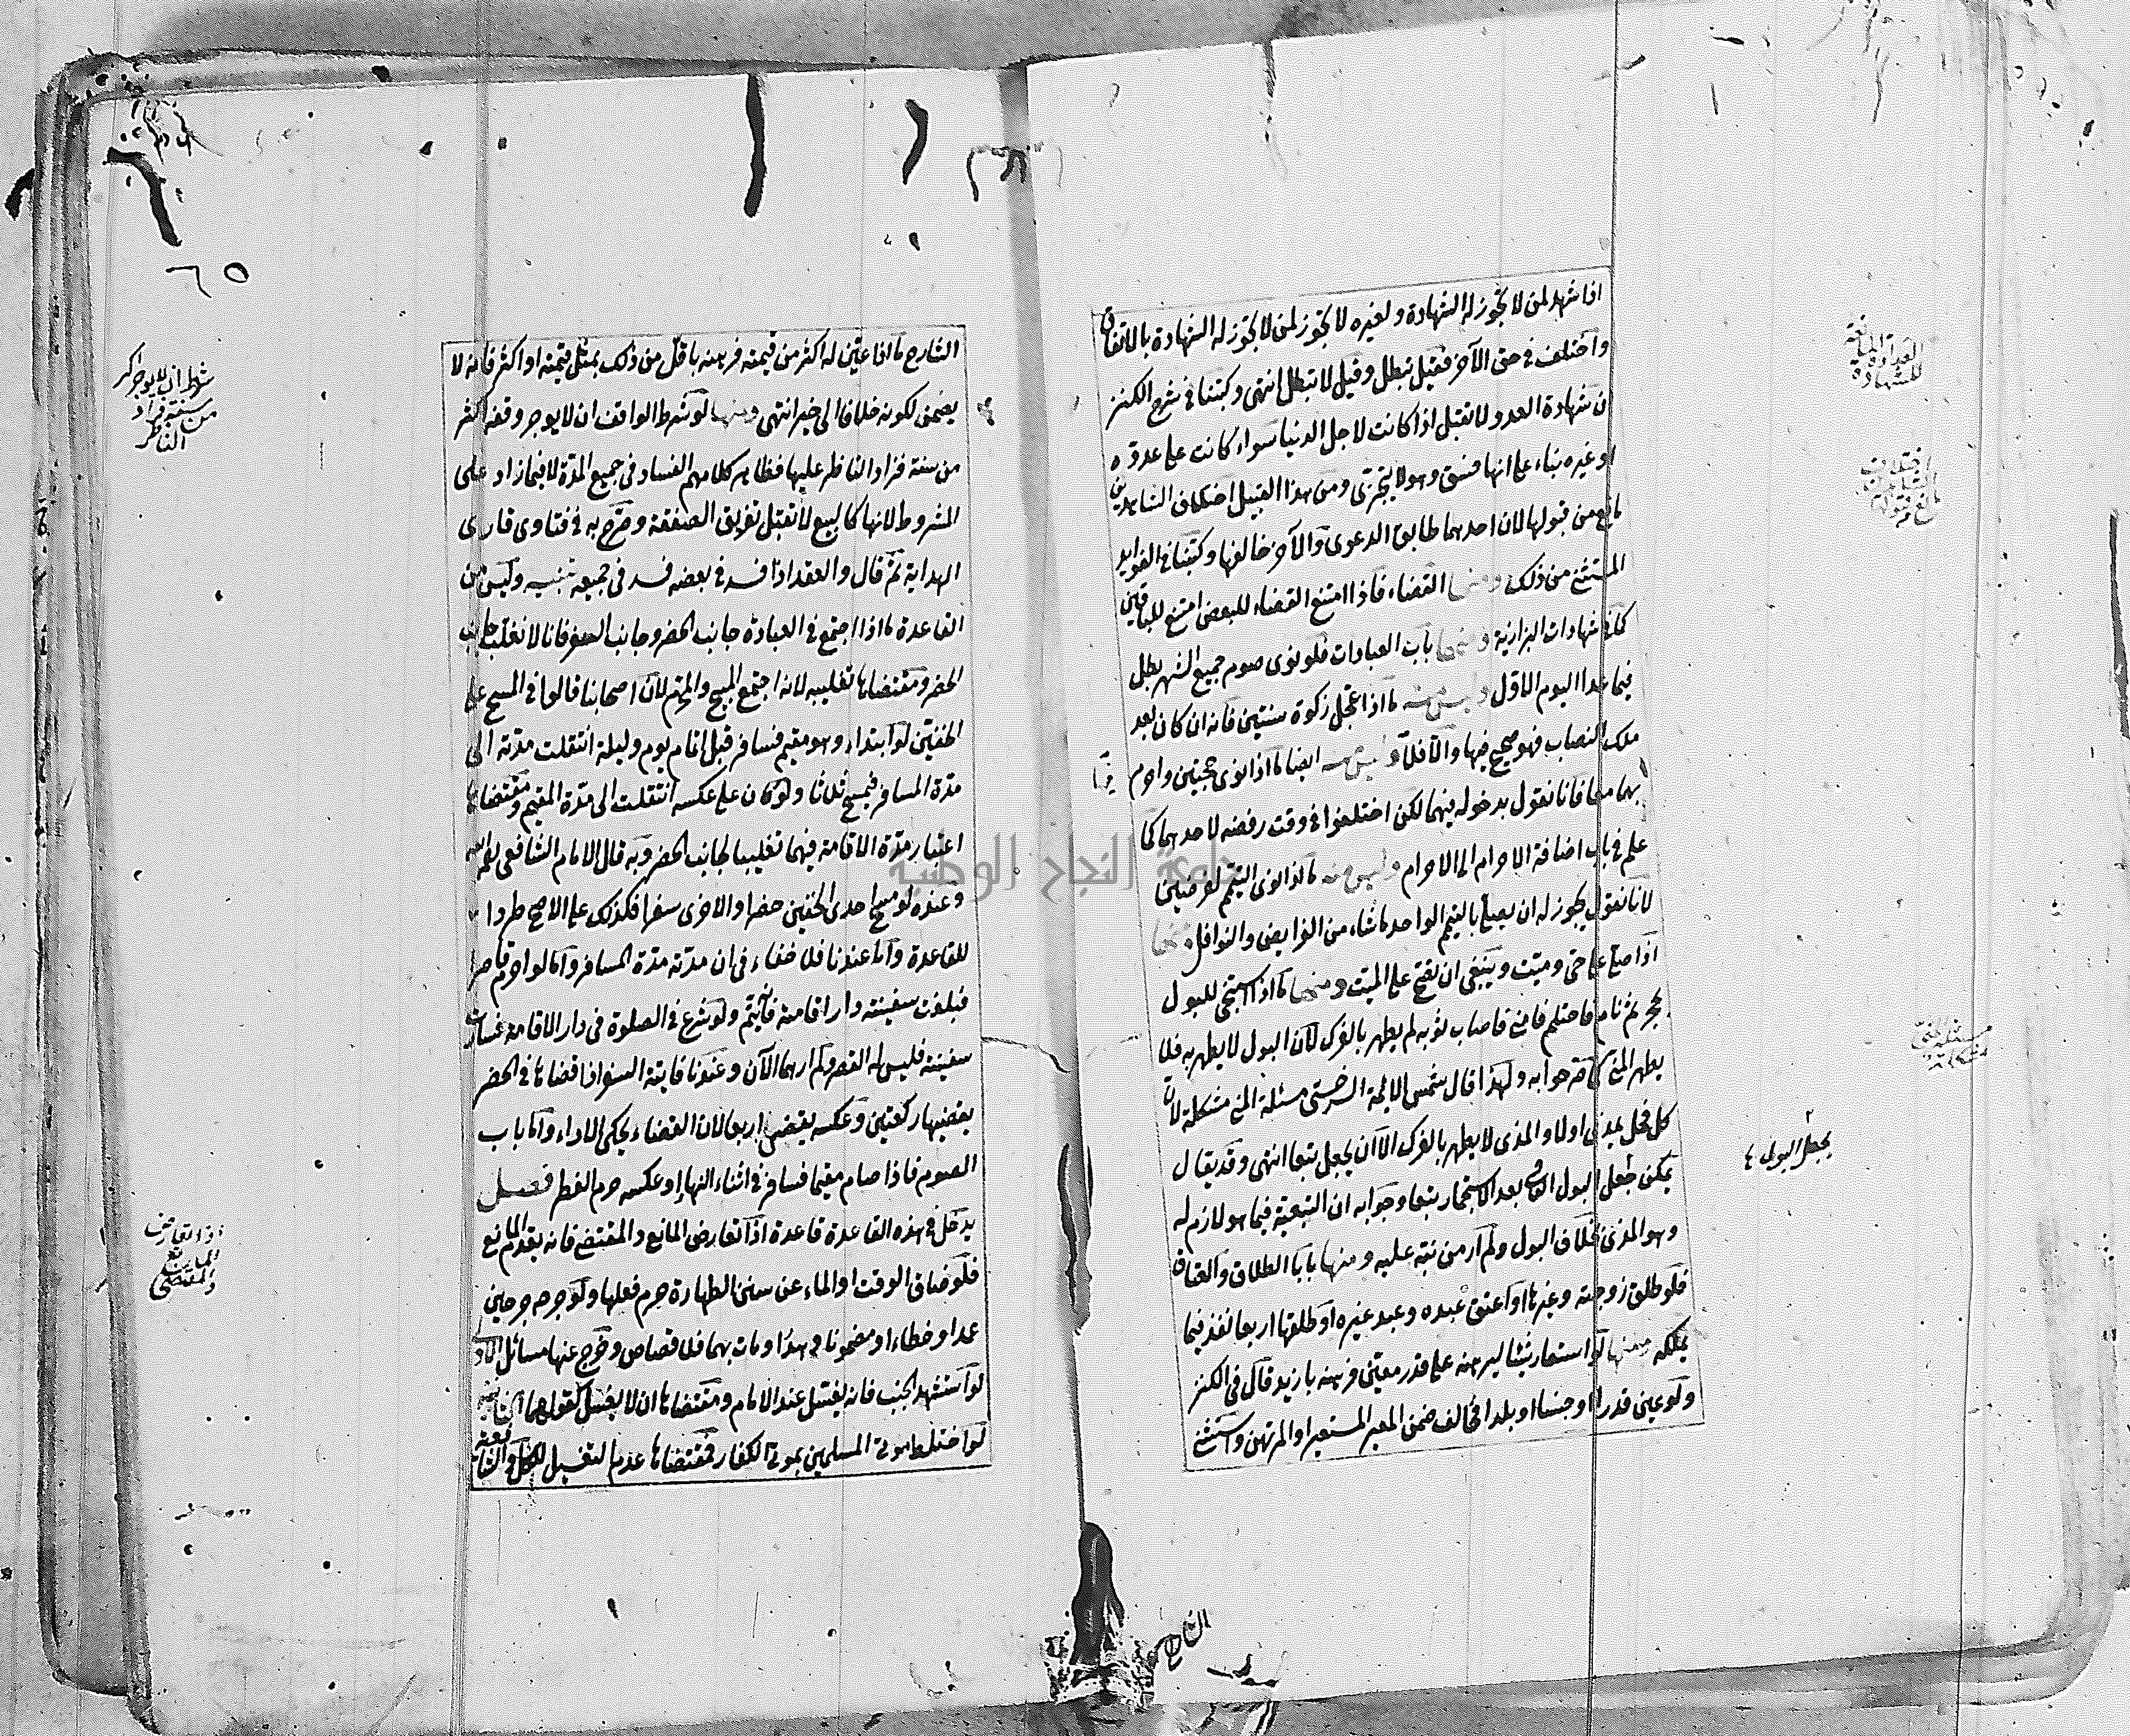 اذا شهد لمن لا تجوز له الشهادة ولغيره لا تجوز لمن لا تجوز له الشهادة بالاتفاق
واختلف في حق الآخر فقيل تبطل وقيل لا تبطل انتهى وكتبنا في شرح الكنز
ان شهادة العدو لا تقبل اذا كانت لاجل الدنيا سواء كانت على عدوه
او غيره بناء على انها فسق وهو لا يتجزى ومن هذا القبيل اختلاف الشاهدين
مانع من قبولها لان احدهما طابق الدعوى والآخر خالفها وكتبنا في الفوايد
المستثنى من ذلك ومنها القضاء فاذا امتنع القضاء للبعض امتنع للباقين
كما في شهادات البزازية ومنها باب العبادات فلو نوى صوم جميع الشهر بطل
فيما عدا اليوم الاول وليس منه ما اذا عجل زكوة سنتين فانه ان كان بعد
ملك النصاب فهو صحيح فيها والا فلا وليس منه ايضا ما اذا نوى حجتين واحرم
بهما معا فانا نقول بدخوله فيهما لكن اختلفوا في وقت رفضه لاحدهما كما
علم في باب اضافة الاحرام الى الاحرام وليس منه ما اذا نوى التيمم لفرضين
لانا نقول يجوز له ان يصلي بالتيمم الواحد ما شاء من الفرايض والنوافل ومنها
اذا صلى على حي وميت وينبغي ان تصح على الميت ومنها ما اذا استنجى للبول
بحجر ثم نام فاحتلم فامنى فاصاب ثوبه لم يطهر بالفرك لان البول لا يطهر به فلا
يطهر المني كما صرحوا به ولهذا قال شمس الايمة السرخسي مسئلة المني مشكلة لان
كل فحل يمذي اولا والمذي لا يطهر بالفرك الا ان يجعل تبعا انتهى وقد يقال
يمكن جعل البول الباقي بعد الاستجمار تبعا وجوابه ان التبعية فيما هو لازم له
وهو المذي بخلاف البول ولم ار من نبه عليه ومنها بابا الطلاق والعتاق
فلو طلق زوجته وغيرها او اعتق عبده وعبد غيره او طلقها اربعا نفذ فيما
يملكه ومنها لو استعار شيئا ليرهنه على قدر معين فرهنه بازيد قال في الكنز
ولو عين قدرا او جنسا او بلدا فخالف ضمن المعير المستعير او المرتهن واستثنى
العداوة المانعة
للشهادة
اختلاف
الشاهدين
مانع من قبولها
مسئلة المني
مشكلة
يجعل البول
٦٥
الشارح ما اذا عين له اكثر من قيمته فرهنه باقل من ذلك بمثل قيمته او اكثر فانه لا
يضمن لكونه خلافا الى خير انتهى ومنها لو شرط الواقف ان لا يوجر وقفه اكثر
من سنة فزاد الناظر عليها فظاهر كلامهم الفساد في جميع المدة لا فيما زاد على
المشروط لانها كالبيع لا تقبل تفريق الصفقة وصرح به في فتاوى قارى
الهداية ثم قال والعقد اذا فسد في بعضه فسد في جميعه تنبيه وليس من
القاعدة ما اذا اجتمع في العبادة جانب الحضر وجانب السفر فانا لا نغلب جانب
الحضر ومقتضاها تغليبه لانه اجتمع المبيح والمحرم لان اصحابنا قالوا في المسح على
الخفين لو ابتداء وهو مقيم فسافر قبل اتمام يوم وليلة انتقلت مدته الى
مدة المسافر فيمسح ثلاثا ولو كان على عكسه انتقلت الى مدة المقيم ومقتضاها
اعتبار مدة الاقامة فيهما تغليبا لجانب الحضر وبه قال الامام الشافعي
وعنده لو مسح احدى الخفين حضرا والاخرى سفرا فكذلك على الاصح طردا
للقاعدة واما عندنا فلا خفاء في ان مدته مدة المسافر واما لو احرم قاصرا
فبلغت سفينته دار اقامته فانه يتم ولو شرع في الصلوة في دار الاقامة فسارت
سفينته فليس له القصر ولم ارهما الآن وعندنا فايتة السفر اذا قضاها في الحضر
يقضيها ركعتين وعكسه يقضي اربعا لان القضاء يحكي الاداء واما باب
الصوم فاذا صام مقيما فسافر في اثناء النهار او عكسه حرم الفطر فصل
يدخل في هذه القاعدة قاعدة اذا تعارض المانع والمقتضي فانه يقدم المانع
فلو ضاق الوقت او الماء عن سنن الطهارة حرم فعلها ولو جرحه جرحين
عمدا وخطاء او مضمونا وهدرا ومات بهما فلا قصاص وخرج عنها مسائل الاولى
لو استشهد الجنب فانه يغسل عند الامام ومقتضاها ان لا يغسل كقولهما الثانية
لو اختلط موتى المسلمين بموتى الكفار فمقتضاها عدم التغسيل للكل
شرط ان لا يوجر اكثر
من سنة فزاد
الناظر
اذا تعارض
المانع
والمقتضي
جامعة النجاح الوطنية